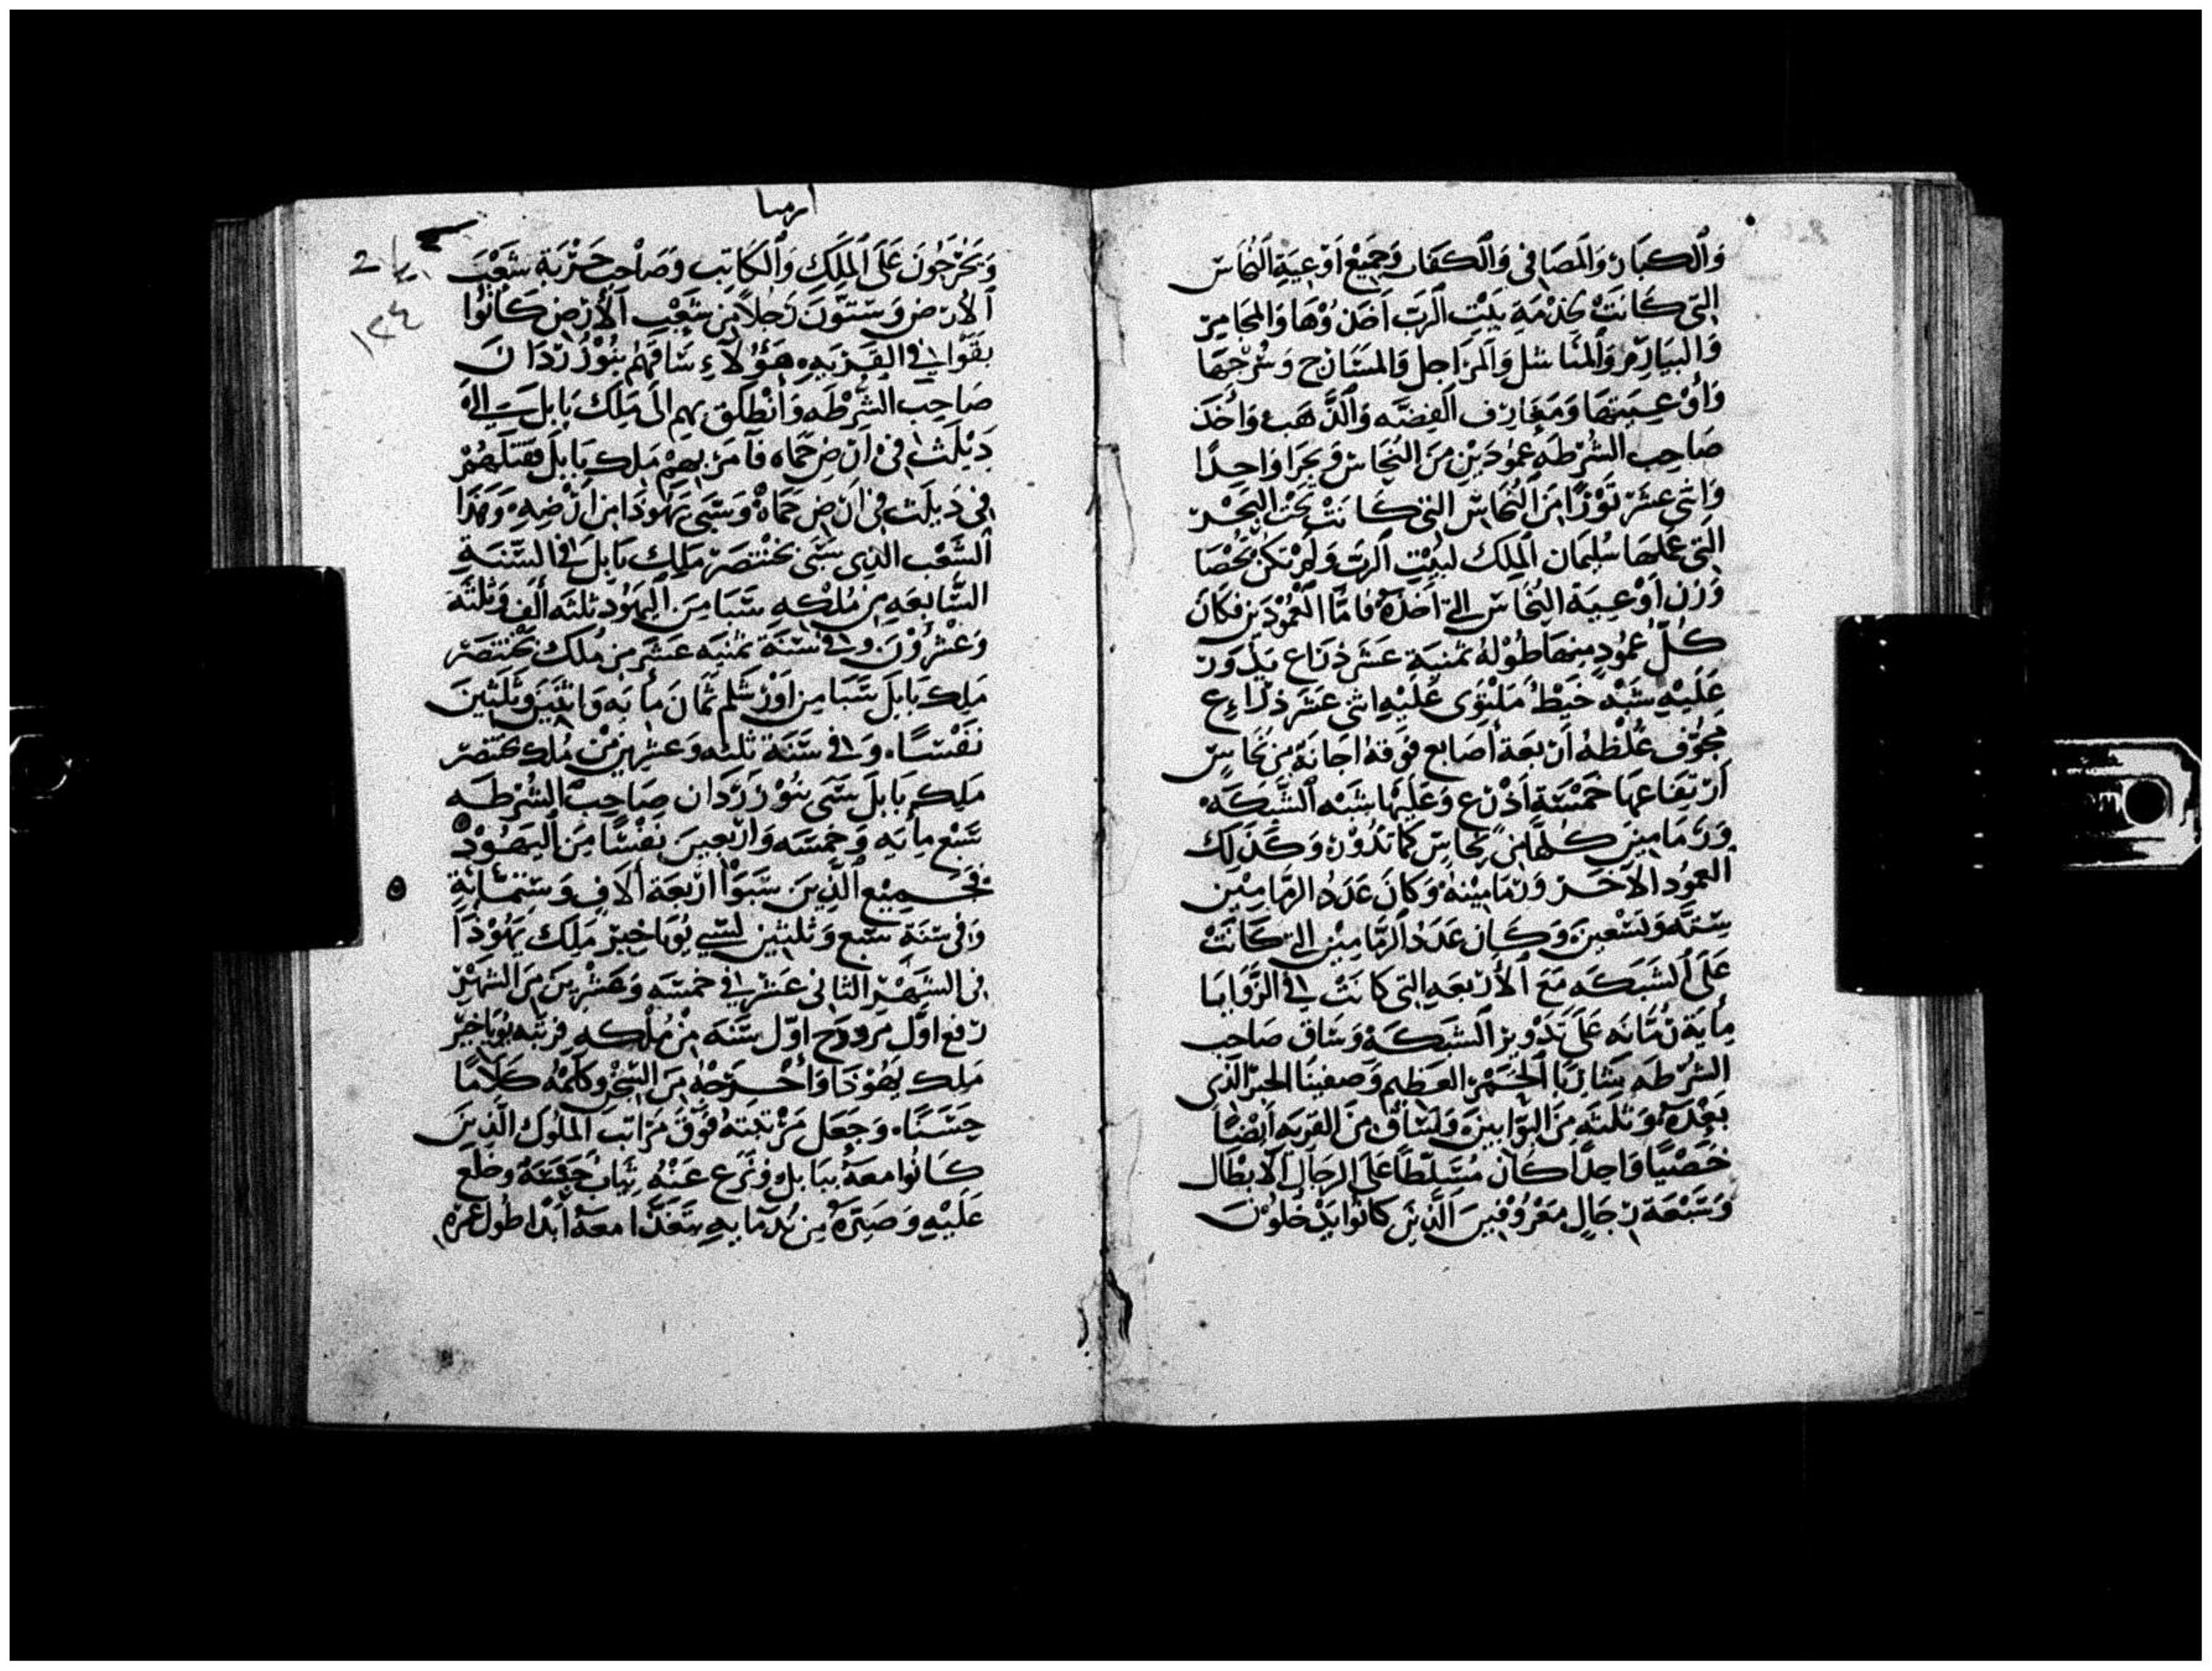 وَالكبَار وَالمصَافي وَالكفات وَجَميْع اَوْعيَةِ النُحَاس
التى كَانَتْ لخدْمَةِ بَيْتِ الرَبّ اَخذوْهَا وَالمجَامِرْ
وَالمنَاشل وَالمرَاجل وَالمسَارج وَسُرْجهَا
وَاَوْعيَتهَا وَمغَارف الفضّه وَالذَّهَب وَأَخذ
صَاحِب الشُرْطه عمُودَيْن مِنَ النُحَاس وَبحرًا وَاحدًا
وَاثنى عشَرَ ثَوْرًا مِنَ النُحَاسْ التى كَانَتْ تَحْتَ البَحْر
التى عمَلهَا سُليمَان المِلك لبيْتِ الرَبّ وَلَمْ تكنْ تُحْصَا
وَزن اَوْعيَة النُحَاسْ التى اَخذهُ فامَّا العمُودَيْن فكانَ
كلّ عمُودٍ منهَا طُوْلهُ ثمنيَةَ عَشَرَ ذرَاع يَدُورْ
عَلَيْهِ شبْه خَيْطٌ مَلتوى عَليْه اثنى عَشَرَ ذرَاع
مَجوَّف غلظهُ أَرْبَعَة أصَابع فوقهُ اجَانَة مِنْ نُحَاس
اَرْتفَاعهَا خَمْسَة أَذْرُع وَعَليهَا شبْه الشَّبَكَه
وَرمَامين كلهَا مِنْ نُحَاسْ كمَا تَدُوْر وَكَذلك
العمُود الآخَر وَرمَامينهُ وَكَانَ عَدَد الرمَامِيْن
ستَّه وَتسْعينَ وَكَان عَدَدُ الرمَامِيْن التى كَانَتْ
عَلَى الشَبَكَه مَعَ الأرْبعَه التى كَانَتْ فى الزَّوَايَا
مِأيَة رُمَّانَه عَلَى تَدْوِيْر الشَبَكَهْ وَسَاق صَاحب
الشُرْطه سَارَيَا الحَبْرْ العَظيم وَصَفينَا الحبْر الذى
بعْدَهُ وَثلثَه مِنَ البَوَّابينَ وَسَاق مِنَ القَرْيَه أَيْضًا
خَصْيًا وَاحدًا كَانَ مُسَلّطًا عَلَى الرجَال الابطَال
وَسَبْعَة رجَالٍ مَعْرُوْفيْنَ الَّذيْنَ كَانُوا يَدْخُلُوْنَ
ارميا
وَيَخْرجُونَ عَلَى المَلِكِ وَالكَاتِب وَصَاحب حَرْبَة شَعْبَ
الأرْض وَستّوْنَ رَجُلًا مِنْ شَعْبِ الأَرْض كَانُوا
بقَّوا فى القَرْيَه. هَؤُلآءِ سَاقهُمْ بنُوْزرْدَان
صَاحِب الشُّرْطَه وَأنْطَلَق بهم الَى مَلِك بَابل الَى
دَبْلَث فى اَرْض حَمَاه فاَمَرَ بهِمْ مَلِك بَابلَ فقتَلهُمْ
فى دَبلَث فى ارْض حَمَاهْ وَسَبى يَهُودَا مِنْ اَرْضِهِ. وَهَذَا
الشَعْب الذى سَبى بَخْتنصَرْ مَلِك بَابلَ فى السَّنَةِ
السَّابعَه مِنْ مُلْكه سَبَا مِنَ اليَهُود ثلثَه أَلف وَثلثَة
وَعشْرُوْن. وَفى سَنَة ثمنيَه عَشَر مِنْ مُلك بَخْتنصَرْ
مَلِك بَابلَ سَبَا مِنْ اوْرْشَلم ثَمَان مأيَه وَاثنَيْن وَثلثينَ
نَفْسًا. وَفى سَنَة ثلثه وَعشرين مِنْ مُلك بختنصرْ
مَلِك بَابلَ سَبَى بنُوْزرْدَان صَاحِب الشُرْطَه
سَبْع مأيَه وَخمسَه وَاربعين نفْسًا مِنَ اليَهُوْد
فَجَمِيْع الَّذِينَ سَبَوْا ارْبعَة ألاَف وَستمَائَة
وَفى سَنَة سَبْع وَثلثين لسبي يُويَاخِيْر مَلِك يَهُوْذَا
فى الشَهْر الثانى عَشَر فى خمسَه وَعشْرِيْن مِنَ الشهْرِ
رَفع اوّل مرودَح اوّل سَنَه مِنْ مُلْكه يُويَاخيْر
مَلِك يَهُوْذَا وَأَخْرجهُ مِنَ السّجْن وَكلّمهُ كَلاَمًا
حَسَنًا. وَجَعَل مَرْتبتهُ فوْقَ مَرَاتبَ المُلُوكَ الذينَ
كَانُوا معَهُ ببَابل وَنَزع عَنْهُ ثِيَاب وخلع
عَلَيْهِ وَصَيّرَهُ مِنْ نُدمَايهِ يتَغَدَّا معَهُ أَبدًا طُول عمْره